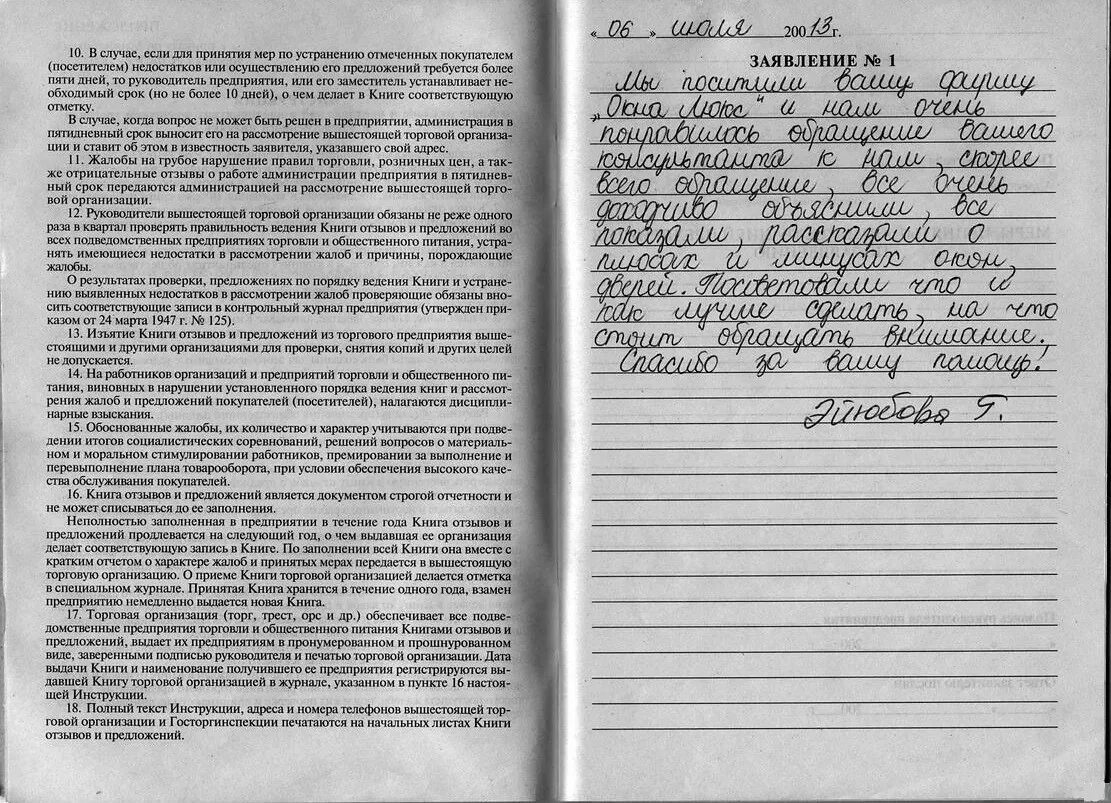 10. В случае, если для принятия мер по устранению отмеченных покупателем
(посетителем) недостатков или осуществлению его предложений требуется более
пяти дней, то руководитель предприятия, или его заместитель устанавливает не-
обходимый срок (но не более 10 дней), о чем делает в Книге соответствующую
отметку.
В случае, когда вопрос не может быть решен в предприятии, администрация в
пятидневный срок выносит его на рассмотрение вышестоящей торговой организа-
ции и ставит об этом в известность заявителя, указавшего свой адрес.
11. Жалобы на грубое нарушение правил торговли, розничных цен, а так-
же отрицательные отзывы о работе администрации предприятия в пятиднев-
ный срок передаются администрацией на рассмотрение вышестоящей торго-
вой организации.
12. Руководители вышестоящей торговой организации обязаны не реже одного
раза в квартал проверять правильность ведения Книги отзывов и предложений во
всех подведомственных предприятиях торговли и общественного питания, устра-
нять имеющиеся недостатки в рассмотрении жалоб и причины, порождающие
жалобы.
О результатах проверки, предложениях по порядку ведения Книги и устране-
нию выявленных недостатков в рассмотрении жалоб проверяющие обязаны вно-
сить соответствующие записи в контрольный журнал предприятия (утвержден при-
казом от 24 марта 1947 г. № 125).
13. Изъятие Книги отзывов и предложений из торгового предприятия выше-
стоящими и другими организациями для проверки, снятия копий и других целей
не допускается.
14. На работников организаций и предприятий торговли и общественного пи-
тания, виновных в нарушении установленного порядка ведения книг и рассмот-
рения жалоб и предложений покупателей (посетителей), налагаются дисципли-
нарные взыскания.
15. Обоснованные жалобы, их количество и характер учитываются при подве-
дении итогов социалистических соревнований, решений вопросов о материаль-
ном и моральном стимулировании работников, премировании за выполнение и
перевыполнение плана товарооборота, при условии обеспечения высокого каче-
ства обслуживания покупателей.
16. Книга отзывов и предложений является документом строгой отчетности и
не может списываться до ее заполнения.
Неполностью заполненная в предприятии в течение года Книга отзывов и
предложений продлевается на следующий год, о чем выдавшая ее организация
делает соответствующую запись в Книге. По заполнении всей Книги она вместе с
кратким отчетом о характере жалоб и принятых мерах передается в вышестоящую
торговую организацию. О приеме Книги торговой организацией делается отметка
в специальном журнале. Принятая Книга хранится в течение одного года, взамен
предприятию немедленно выдается новая Книга.
17. Торговая организация (торг, трест, орс и др.) обеспечивает все подве-
домственные предприятия торговли и общественного питания Книгами отзывов и
предложений, выдает их предприятиям в пронумерованном и прошнурованном
виде, заверенными подписью руководителя и печатью торговой организации. Дата
выдачи Книги и наименование получившего ее предприятия регистрируются вы-
давшей Книгу торговой организацией в журнале, указанном в пункте 16 настоя-
щей Инструкции.
18. Полный текст Инструкции, адреса и номера телефонов вышестоящей тор-
говой организации и Госторгинспекции печатаются на начальных листах Книги
отзывов и предложений.
« 06 » июля 200 13 г.
ЗАЯВЛЕНИЕ № 1
Мы поситили вашу фирму
„Окна Люкс" и нам очень
понравилось обращение вашего
консультанта к нам, скорее
всего обращение, все очень
доходчиво объяснили, все
показали, рассказали о
плюсах и минусах окон,
дверей. Посветовали что и
как лучше сделать, на что
стоит обращать внимание.
Спасибо за вашу помощь!
Эйюбова Г.